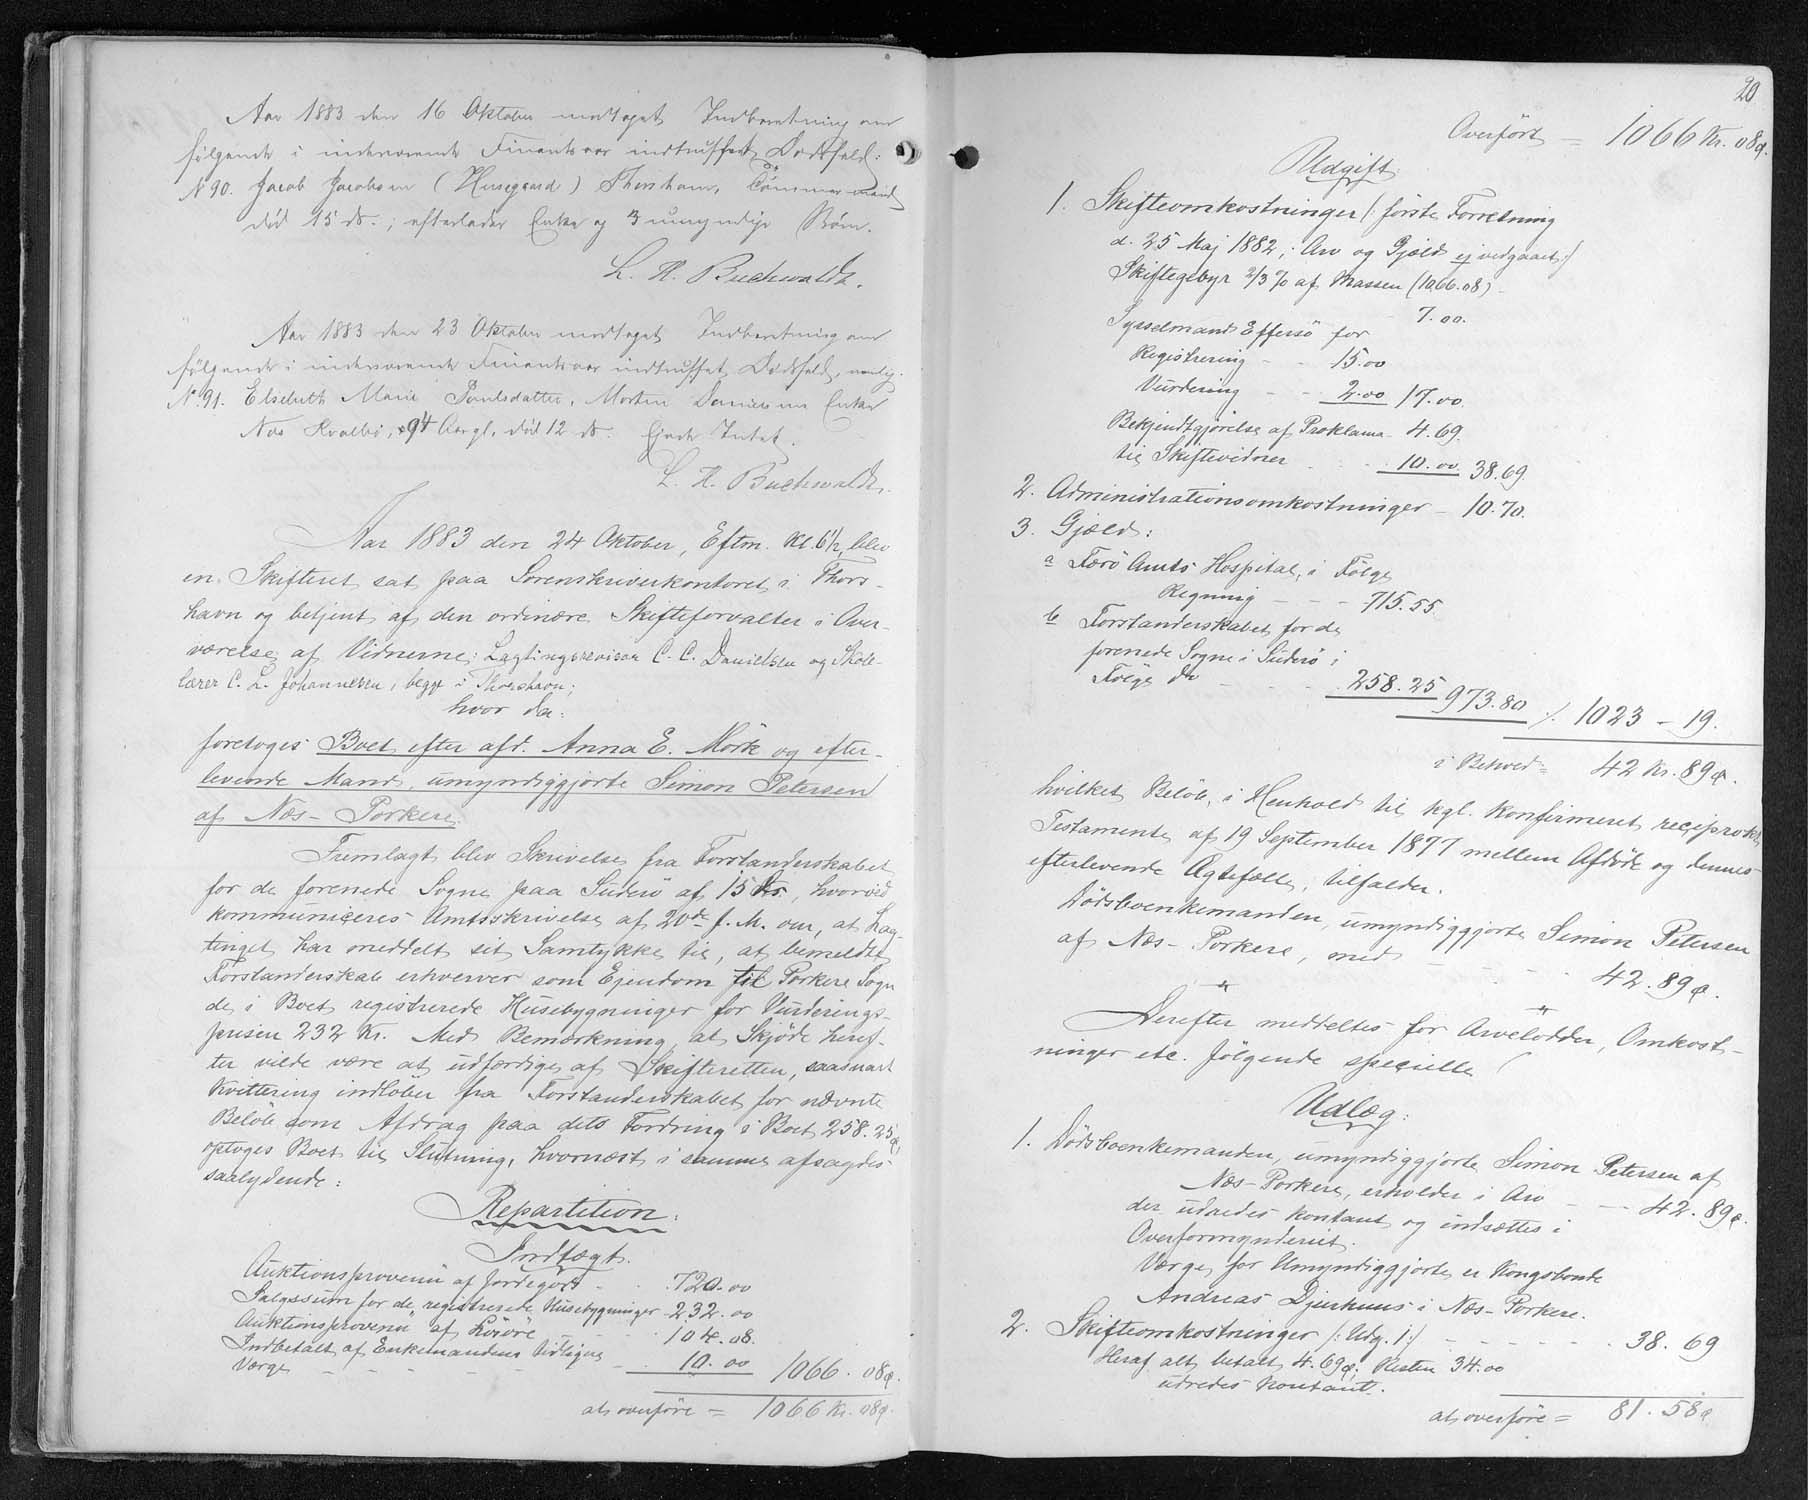 Aar 1883 den 16 Oktober modtaget Indberetning om
følgende i indeværende Finantsaar indtruffet Dødsfald:
N 90. Jacob Jacobsen (Husegaard) Thorshavn, Tømmermand
død 15 ds.; efterlader Enke og 3 umyndige Børn.
L. A. Buchwaldt.
Aar 1883 den 23 Oktober modtaget Indberetning om
følgende i indeværende Finantsaar indtruffet Dødsfald, nemlig.
N. 91. Elsebeth Marie Poulsdatter, Morten Enke
Næs Hvalbø, 94 Aargl., død 12 ds. Ejede Intet.
L. A. Buchwaldt.
Aar 1883 den 24 Oktober, Eftm. Kl. 6½, blev
en Skifteret sat paa Sorenskriverkontoret i Thors-
havn og betjent af den ordinære Skifteforvalter i Over-
værelse af Vidnerne: Lagtingsrevisor C. C. Danielsen og Skole-
lærer C. L. Johannesen, begge i Thorshavn;
hvor da:
foretoges Boet efter afd. Anna E. Mörk og efter-
levende Mand, umyndiggjorte Simon Petersen
af Næs-Porkere.
Fremlagt blev Skrivelse fra Forstanderskabet
for de forenede Sogne paa Suderö af 15 ds., hvorved
kommuniceres Amtsskrivelse af 20de f. M. om, at Lag-
tinget har meddelt sit Samtykke til, at bemeldte
Forstanderskab erhverver som Ejendom til Porkere Sogn
de i Boet registrerede Husebygninger for Vurderings-
prisen 232 Kr. Med Bemærkning, at Skjöde heref-
ter vilde være at udfærdige af Skifteretten, saasnart
Kvittering indløber fra Forstanderskabet for nævnte
Beløb som Afdrag paa dets Fordring i Boet 258.25ø,
optoges Boet til Slutning, hvornæst i samme afsagdes
saalydende:
Repartition:
Indtægt.
Auktionsprovenu af Jordegods - 720.00
Salgssum for de registrerede Husebygninger 232.00
Auktionsprovenu af Lösöre 104.08.
Indbetalt af Enkemandens tidligere
Værge - - - - 10.00 1066.08ø.
at overföre = 1066 Kr. 08ø.
20
Overfört = 1066 Kr. 08ø.
Udgift:
1. Skifteomkostninger /: første Forretning
d. 25 Maj 1882; Arv og Gjæld ej vedgaaet :/
Skiftegebyr 2/3 % af Massen (1066.08) -
7.00.
Sysselmand Effersö for
Registrering - - 15.00
Vurdering - - 2.00 17.00.
Bekjendtgjørelse af Proklama - 4.69.
til Skiftevidner - 10.00 38.69.
2. Administrationsomkostninger - 10.70.
3. Gjæld:
a Færö Amts Hospital, i Følge
Regning - - - 715.55
b Forstanderskabet for de
forenede Sogne i Suderö i
Følge do - - - 258.25 973.80 ./. 1023 - 19.
i Behold = 42 Kr. 89ø.
hvilket Beløb, i Henhold til kgl. konfirmeret reciprokt
Testamente af 19 September 1877 mellem Afdøde og dennes
efterlevende Ægtefælle, tilfalder.
Dödsboenkemanden, umyndiggjorte Simon Petersen
af Næs-Porkere, med - - - - 42.89ø.
Derefter meddeltes for Arvelodder, Omkost-
ninger etc. følgende specielle
Udlæg:
1. Dödsboenkemanden, umyndiggjorte Simon Petersen af
Næs-Porkere, erholder i Arv - - - 42.89ø.
der udredes kontant og indsættes i
Overformynderiet.
Værge for Umyndiggjorte er Kongsbonde
Andreas Djurhuus i Næs-Porkere.
2. Skifteomkostninger /: Udg. 1 :/ - - - - - 38.69
Heraf alt betalt 4.69ø; Resten 34.00
udredes kontant.
at overföre = 81.58ø